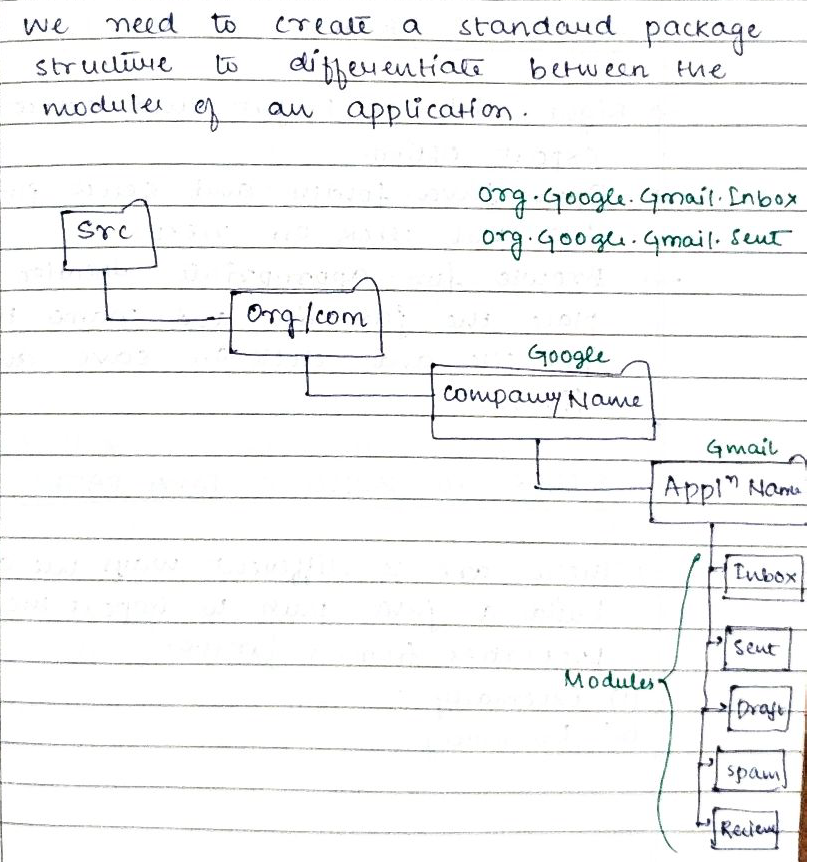 We need to create a standard package
structure to differentiate between the
modules of an application.
org.Google.Gmail.Inbox
Src
org.Google.Gmail.Sent
Org/com
Google
Company Name
Gmail
Applⁿ Name
Inbox
Sent
Modules
Draft
Spam
Review